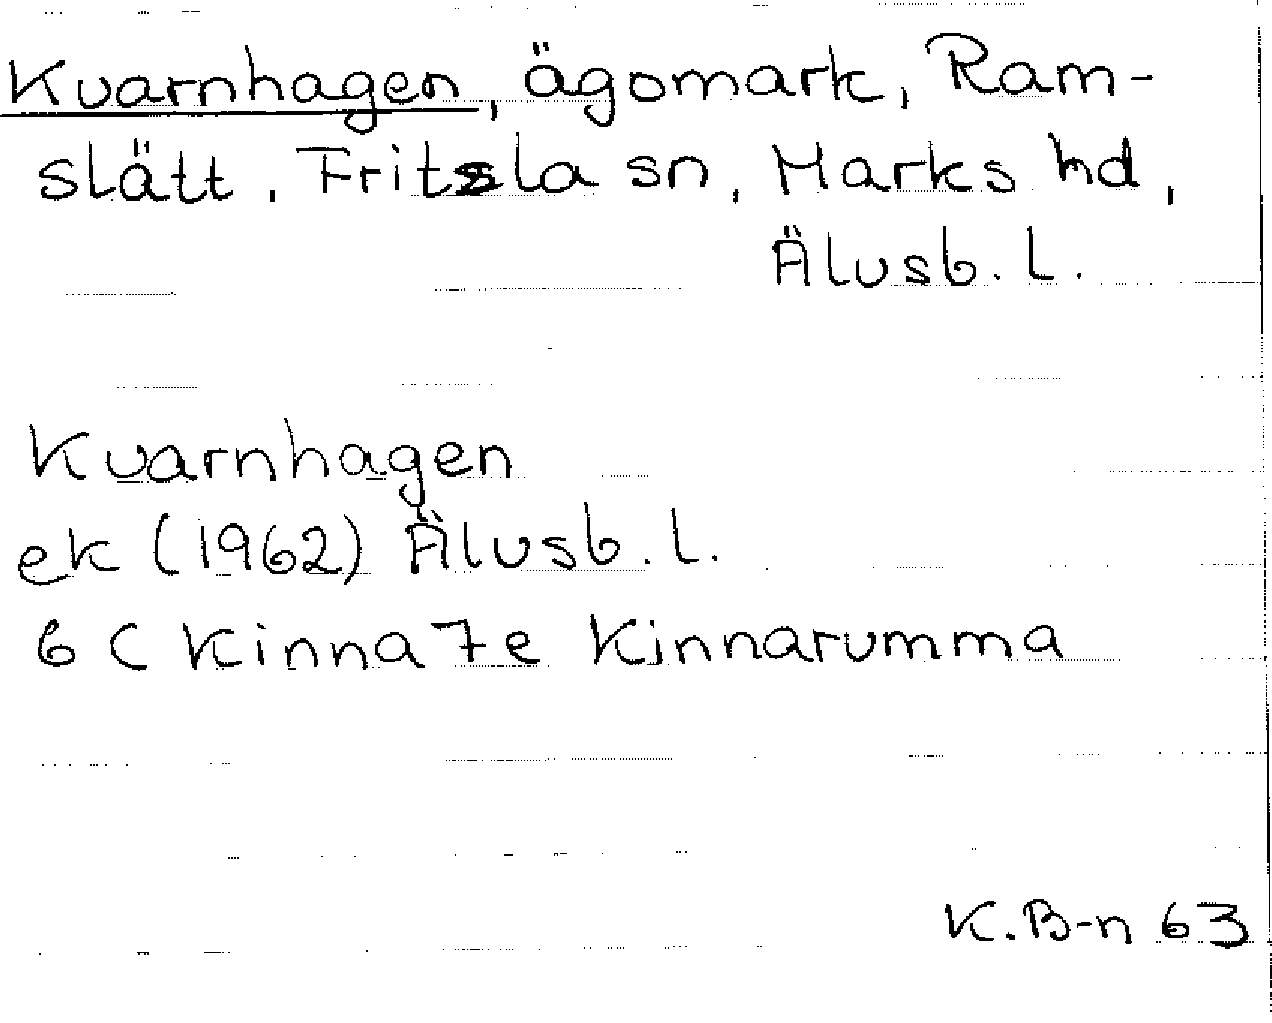 Kvarnhagen, ägomark, Ram-
slätt, Fritsla sn, Marks hd,
Älvsb. l.
Kvarnhagen
ek (1962) Älvsb. l.
6 C Kinna 7e Kinnarumma
K.B-n 63